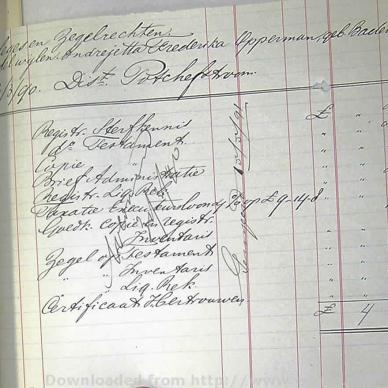 en Zegelrechten
wijlen Andrejetta Frederika Opperman, geb. Baden
/3/90. Dist. Potchefstroom.
£
Registr. Sterfkennis
" Testament
Copie "
Brief Administratie
Registr. Liq. Rek.
Taxatie Executeursloon op £9-14-8
Goedk. Copie en registr.
Inventaris
Zegel op Testament
" " Inventaris
" " Liq. Rek.
Certificaat Hertrouwen
£ 4
Downloaded from http://www.